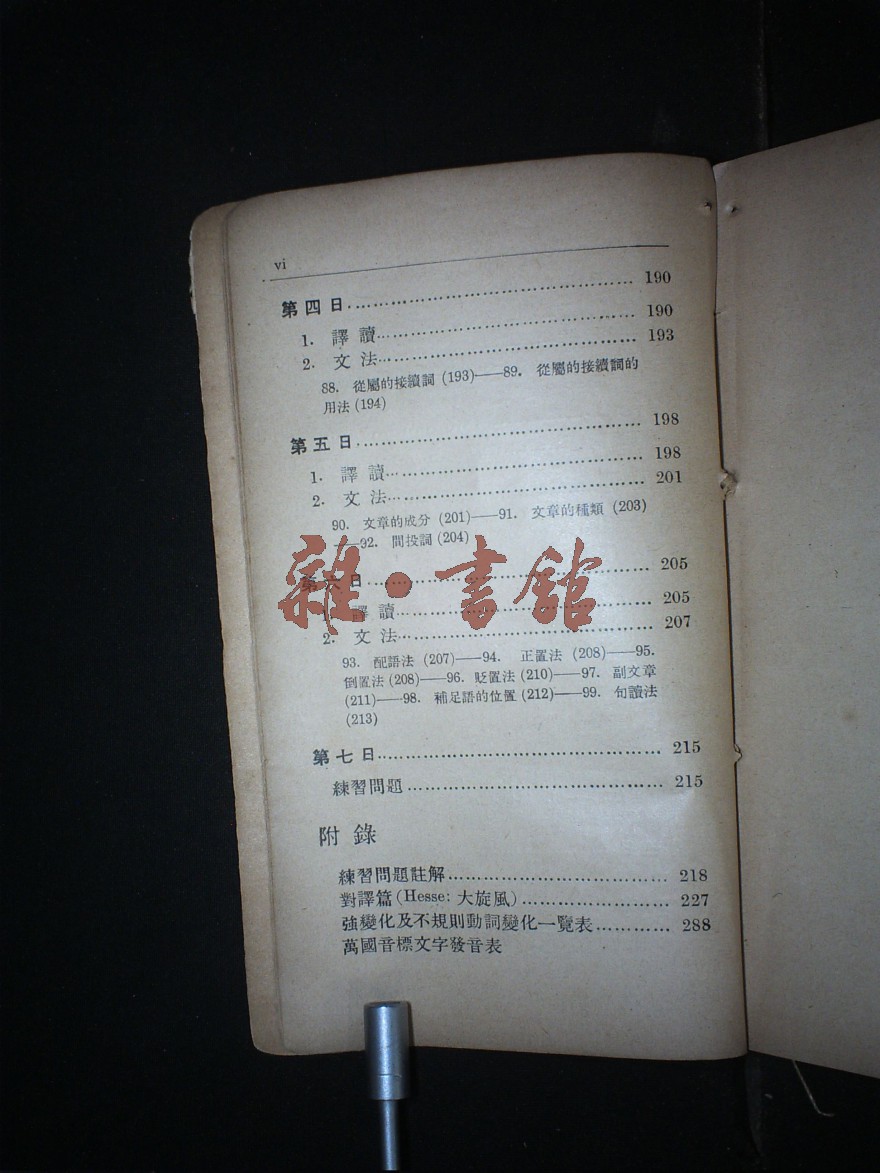 vi
第四日 190
1. 譯讀 190
2. 文法 193
88. 從屬的接續詞 (193)——89. 從屬的接續詞的
用法 (194)
第五日 198
1. 譯讀 198
2. 文法 201
90. 文章的成分 (201)——91. 文章的種類 (203)
——92. 間投詞 (204)
雜·書館
第六日 205
1. 譯讀 205
2. 文法 207
93. 配語法 (207)——94. 正置法 (208)——95.
倒置法 (208)——96. 貶置法 (210)——97. 副文章
(211)——98. 補足語的位置 (212)——99. 句讀法
(213)
第七日 215
練習問題 215
附錄
練習問題註解 218
對譯篇 (Hesse: 大旋風) 227
強變化及不規則動詞變化一覽表 288
萬國音標文字發音表